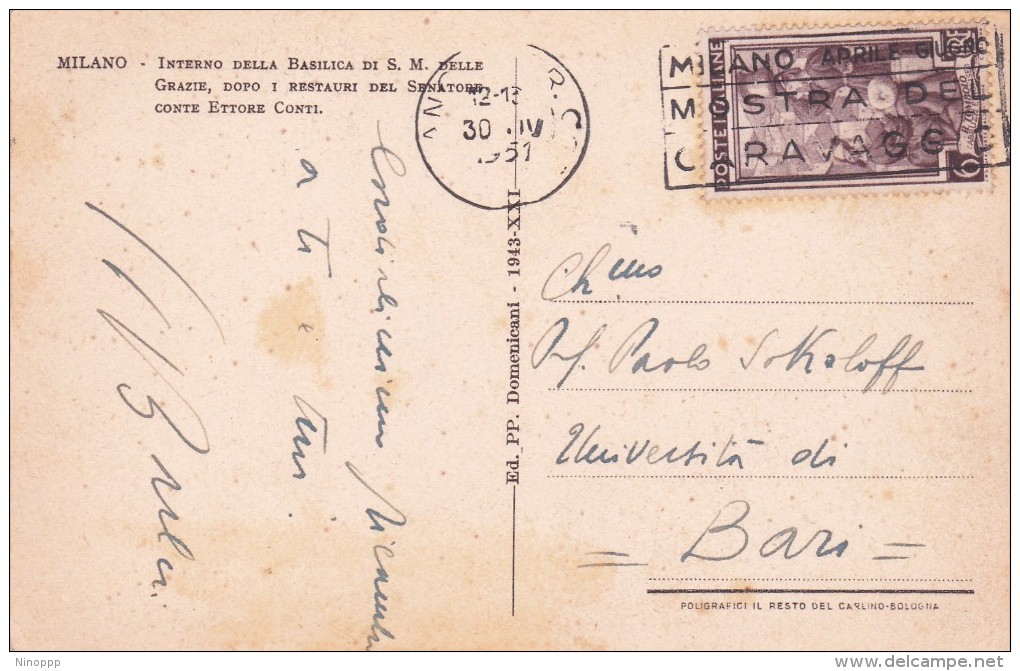 MILANO - INTERNO DELLA BASILICA DI S. M. DELLE
GRAZIE, DOPO I RESTAURI DEL SENATORE
CONTE ETTORE CONTI.
12-13
30 IV
1951
MILANO APRILE-GIUGNO
MOSTRA DEL
CARAVAGGIO
POSTE ITALIANE
LIRE
6
Ed. PP. Domenicani - 1943-XXI
a te e
tuoi
Ch mo
Prof. Paolo Sokoloff
Università di
= Bari =
POLIGRAFICI IL RESTO DEL CARLINO-BOLOGNA
Ninoppp
delcampe.net